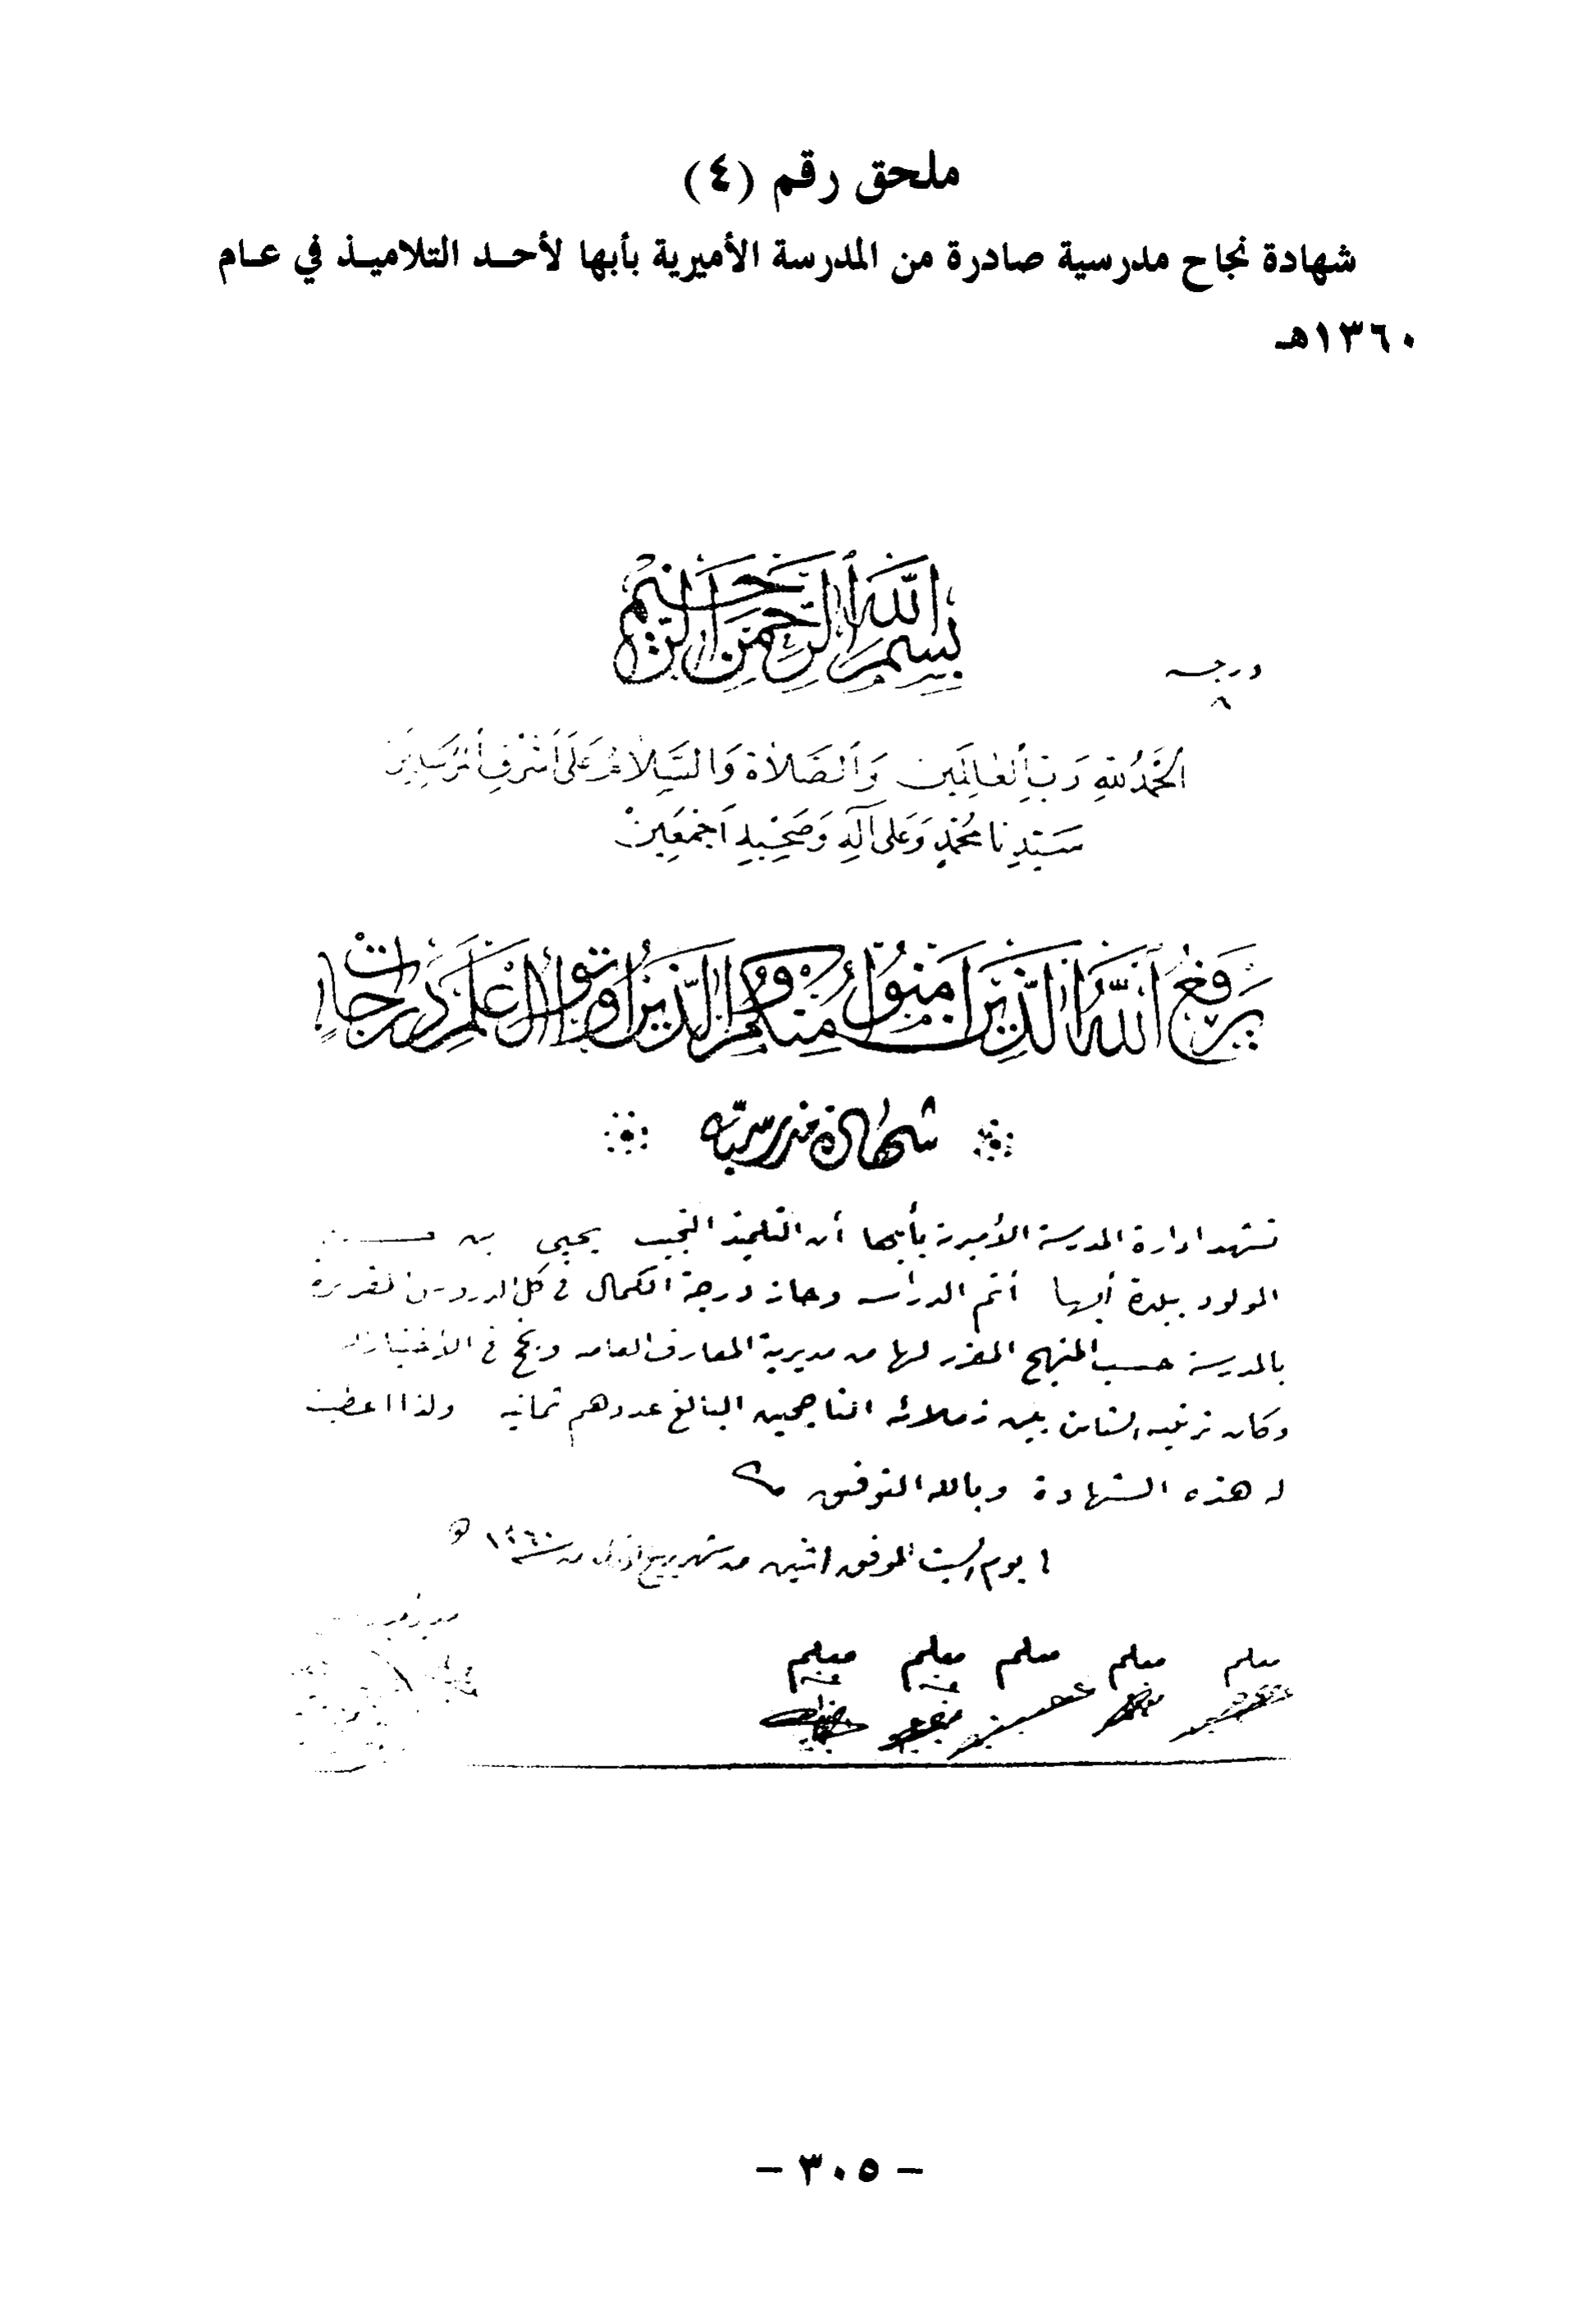 ملحق رقم (٤)
شهادة نجاح مدرسية صادرة من المدرسة الأميرية بأبها لأحــد التلاميــذ في عــام
١٣٦٠هـ
بِسْمِ اللهِ الرَّحْمٰنِ الرَّحِيمِ
درجه
٨
اَلْحَمْدُ للهِ رَبِّ الْعَالَمِينَ وَالصَّلَاةُ وَالسَّلَامُ عَلَى أَشْرَفِ الْمُرْسَلِينَ
سَيِّدِنَا مُحَمَّدٍ وَعَلَى آلِهِ وَصَحْبِهِ أَجْمَعِينْ
يَرْفَعُ اللهُ الَّذِينَ آمَنُوا مِنْكُمْ وَالَّذِينَ أُوتُوا الْعِلْمَ دَرَجَاتٍ
شهادة مدرسية
تشهد ادارة المدرسة الأميرية بأبها أن التلميذ النجيب يحيى بن
المولود ببلدة أبها أتم الدراسه وحاز درجة الكمال في كل الدروس المقررة
بالمدرسة حسب المنهج المقرر لها من مديرية المعارف العامه ونجح في الأختبار
وكان ترتيبه الثامن بين زملائه الناجحين البالغ عددهم ثمانيه ولذا اعطيت
له هذه الشهادة وبالله التوفيق
يوم السبت الموفق اثنين من شهر ربيع من سنة ١٣٦٠ هـ
معلم معلم معلم معلم معلم
– ٣٠٥ –